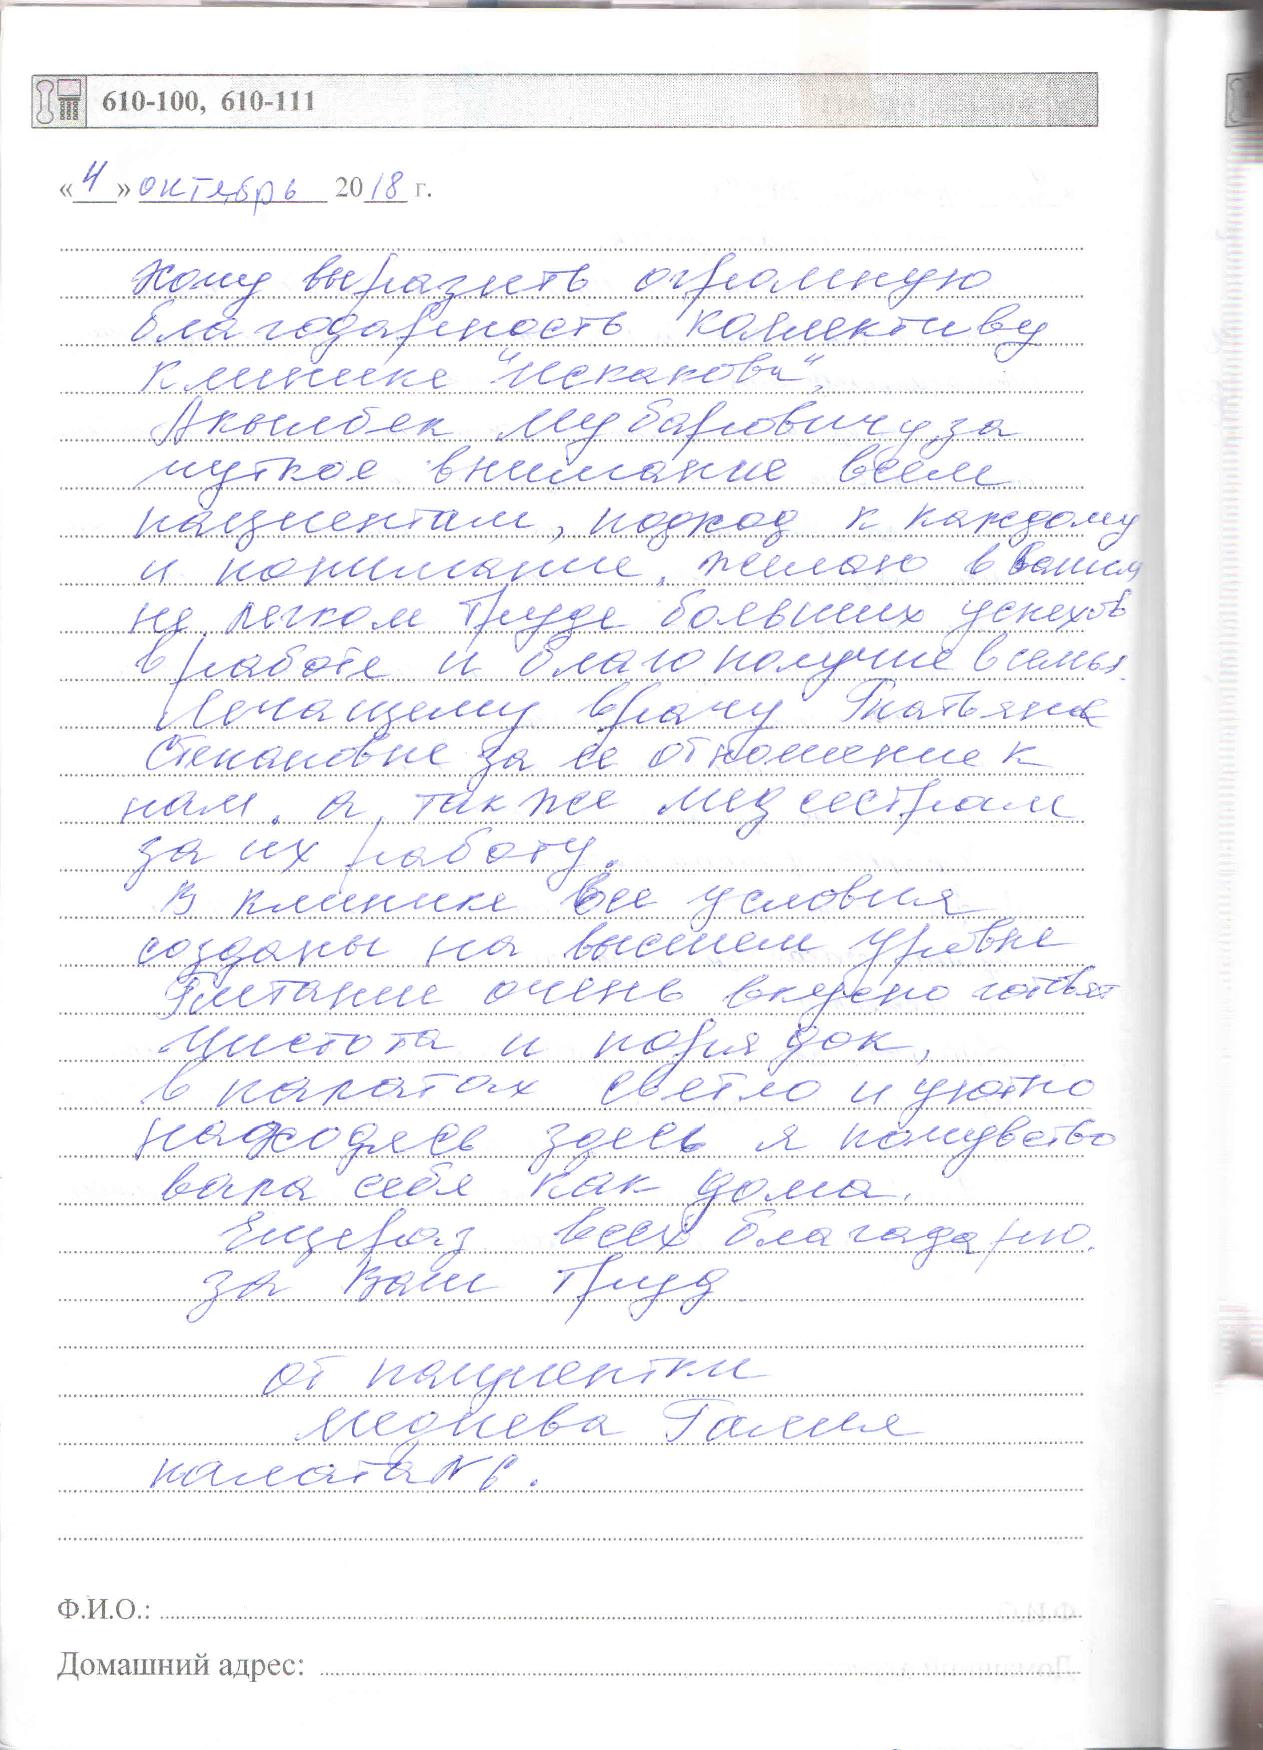 610-100, 610-111
«4» октябрь 2018 г.
Хочу выразить огромную
благодарность коллективу
клинике "Искакова".
Акылбек Мубаровичу за
чуткое внимание всем
пациентам, подход к каждому
и понимание, желаю в вашем
не легком труде больших успехов
в работе и благополучие в семье.
Лечащему врачу Татьяне
Степановне за ее отношение к
нам, а также медсестрам
за их работу.
В клинике все условия
созданы на высшем уровне
Питание очень вкусно готовят
Чистота и порядок,
в палатах светло и уютно
находясь здесь я почувство
вала себя как дома.
Ещераз всех благадарю.
за Ваш труд
от пациентки
Галия
палата N 6.
Ф.И.О.:
Домашний адрес: